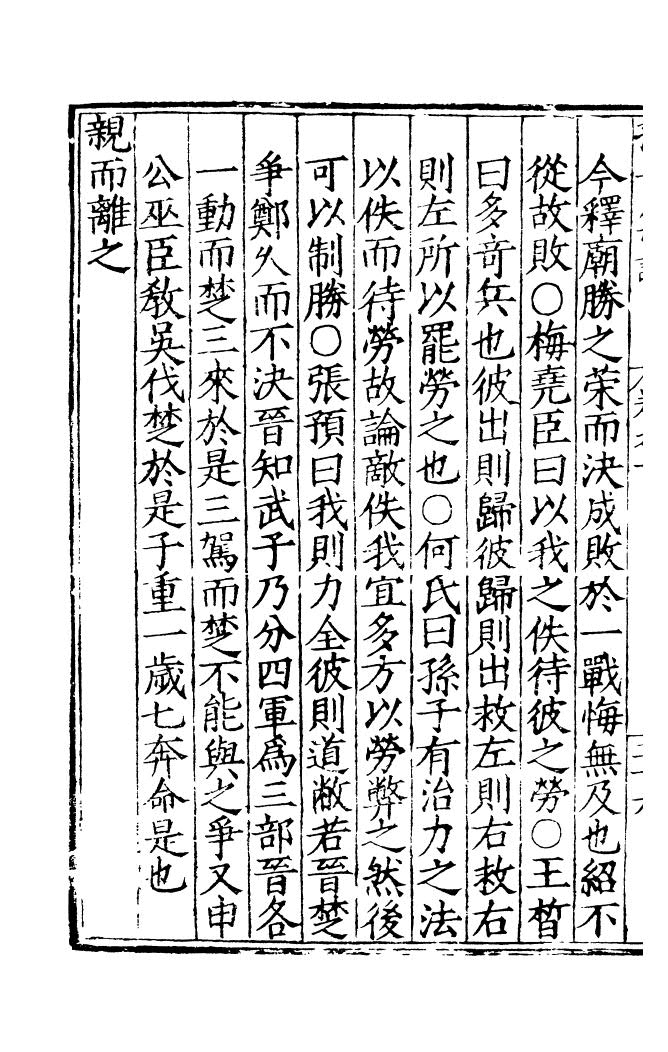 今釋廟勝之荣而決成敗於一戰悔無及也紹不
從故敗○梅堯臣曰以我之佚待彼之勞○王晳
曰多竒兵也彼出則歸彼歸則出救左則右救右
則左所以罷勞之也○何氏曰孫子有治力之法
以佚而待勞故論敵佚我宜多方以勞弊之然後
可以制勝○張預曰我則力全彼則道敝若晉楚
爭鄭久而不決晉知武子乃分四軍爲三部晉各
一動而楚三來於是三駕而楚不能與之爭又申
公巫臣敎吳伐楚於是子重一歲七奔命是也
親而離之